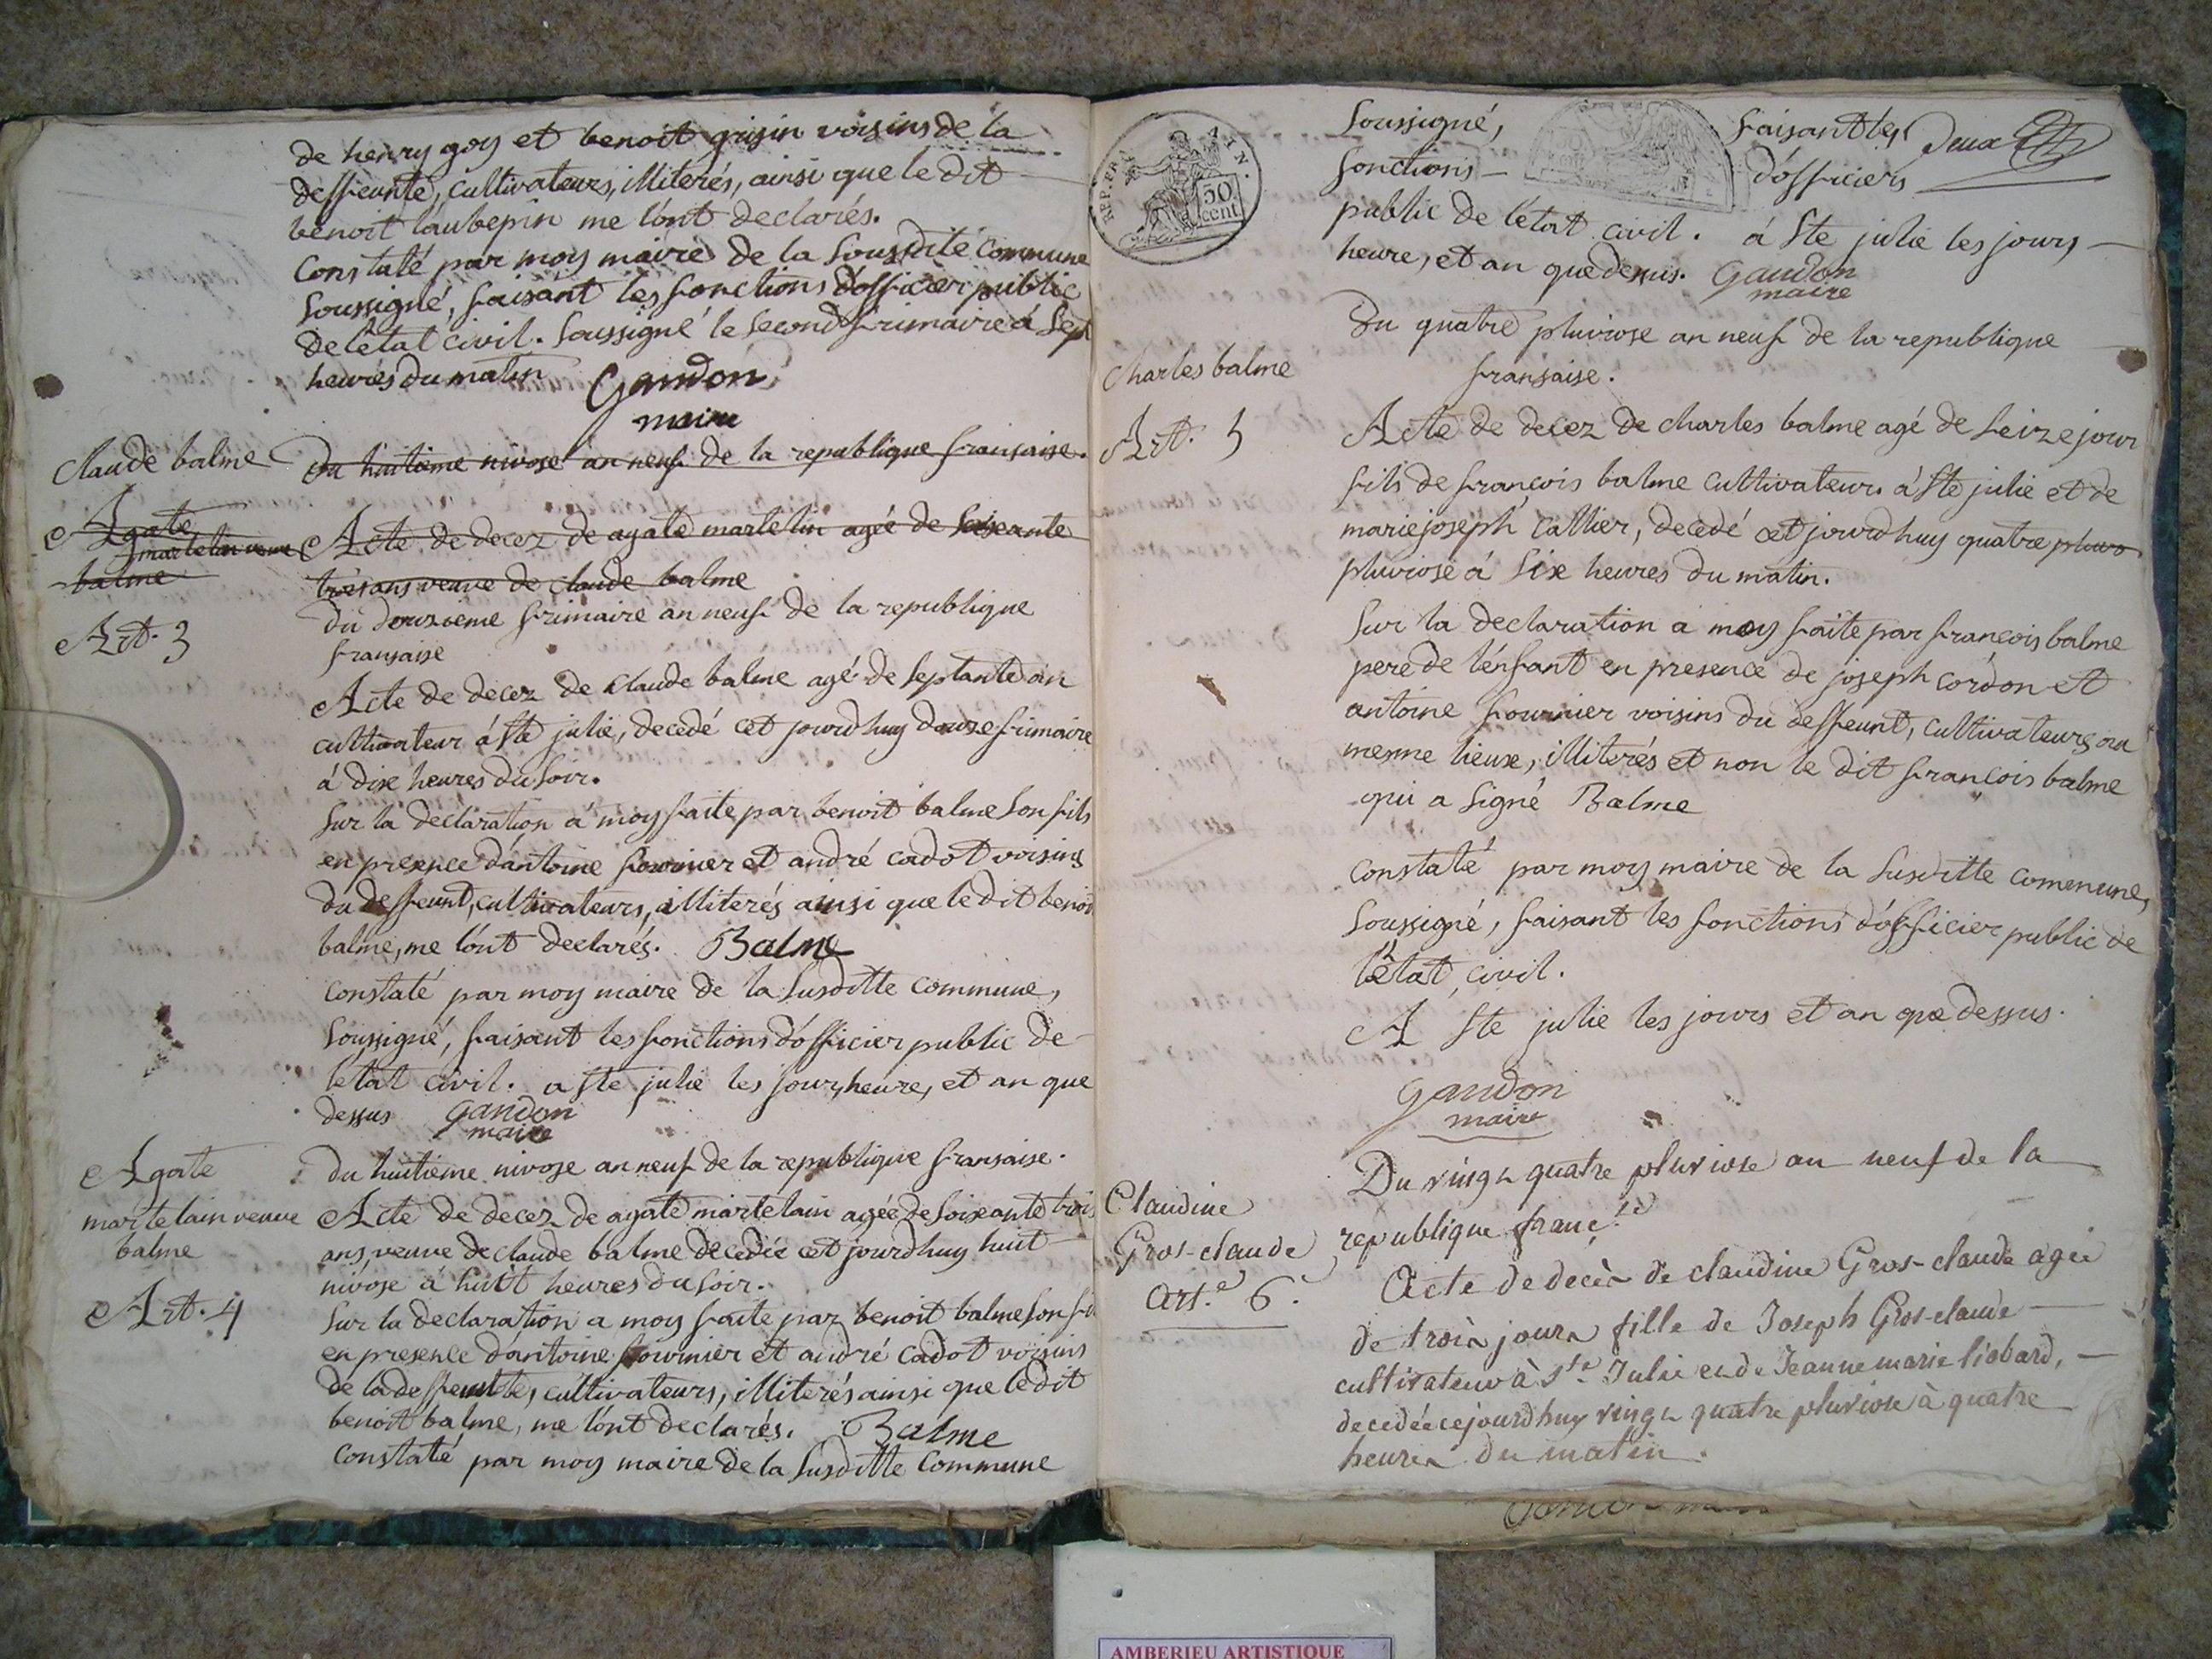 de henry goy et benoit grisin voisins de la
deffeunte, cultivateurs, illiterés, ainsi que le dit
benoit laubepin me l'ont declarés.
Constaté par moy maire de la Sousdite Commune
Soussigné, faisant les fonctions d'officier public
de l'état civil. Soussigné le Second frimaire á Sept
heures du matin Gandon
maire
Claude balme
Du huitieme nivose an neuf de la republique fransaise.
Agate
martelin veuve
balme
Acte de decez de agate martelin agée de Soiseante
trois ans veuve de Claude balme
Art. 3
Du douzieme frimaire an neuf de la republique
fransaise
Acte de decez de Claude balme agé de Septante an
cultivateur á Ste julie, decedé cet jourdhuy douze frimaire
á dix heures du Soir.
Sur la declaration á moy faite par benoit balme Son fils
en presence d'antoine fournier et andré cadot voisins
du deffeunt, cultivateurs, illiterés ainsi que le dit benoit
balme, me l'ont declarés. Balme
Constaté par moy maire de la Susditte Commune,
Soussigné, faisant les fonctions d'officier public de
l'état civil. a Ste julie les jour, heure, et an que
dessus Gandon
maire
Agate
martelain veuve
balme
Art. 4
Du huitieme nivose an neuf de la republique fransaise.
Acte de decez de agate martelain agée de Soixante trois
ans, veuve de Claude balme decedée cet jourdhuy huit
nivose á huit heures du Soir.
Sur la declaration a moy faite par benoit balme Son fils
en presence d'antoine fournier et andré cadot voisins
de la deffeunttes, cultivateurs, illiterés ainsi que le dit
benoit balme, me l'ont declarés. Balme
Constaté par moy maire de la Susditte Commune
REP. FRA. AIN.
50
cent.
Soussigné, faisant les Deux
fonctions d'officiers
public de l'état civil. á Ste julie les jours
heure, et an que dessus. Gandon
maire
Charles balme
Art. 5
Du quatre pluviose an neuf de la republique
fransaise.
Acte de decez de Charles balme agé de Seize jour
fils de françois balme Cultivateur. á Ste julie et de
marie joseph Callier, decedé cet jourdhuy quatre pluvo
pluviose á Six heures du matin.
Sur la declaration a moy faite par françois balme
pere de l'enfant en presence de joseph cordon et
antoine fournier voisins du deffeunt, cultivateurs au
mesme lieux, illiterés et non le dit françois balme
qui a Signé Balme
Constaté par moy maire de la Susditte Commune,
Soussigné, faisant les fonctions d'officier public de
l'état civil.
A Ste julie les jours et an que dessus.
Gandon
maire
Claudine
Gros-claude
Art.e 6.
Du vingt quatre pluviose an neuf de la
republique franç.se
Acte de decès de claudine Gros-claude agée
de trois jours fille de Joseph Gros-claude
cultivateur à Ste Julie et de Jeanne marie liobard,
decedée cejourdhuy vingt quatre pluviose à quatre
heures du matin.
AMBERIEU ARTISTIQUE